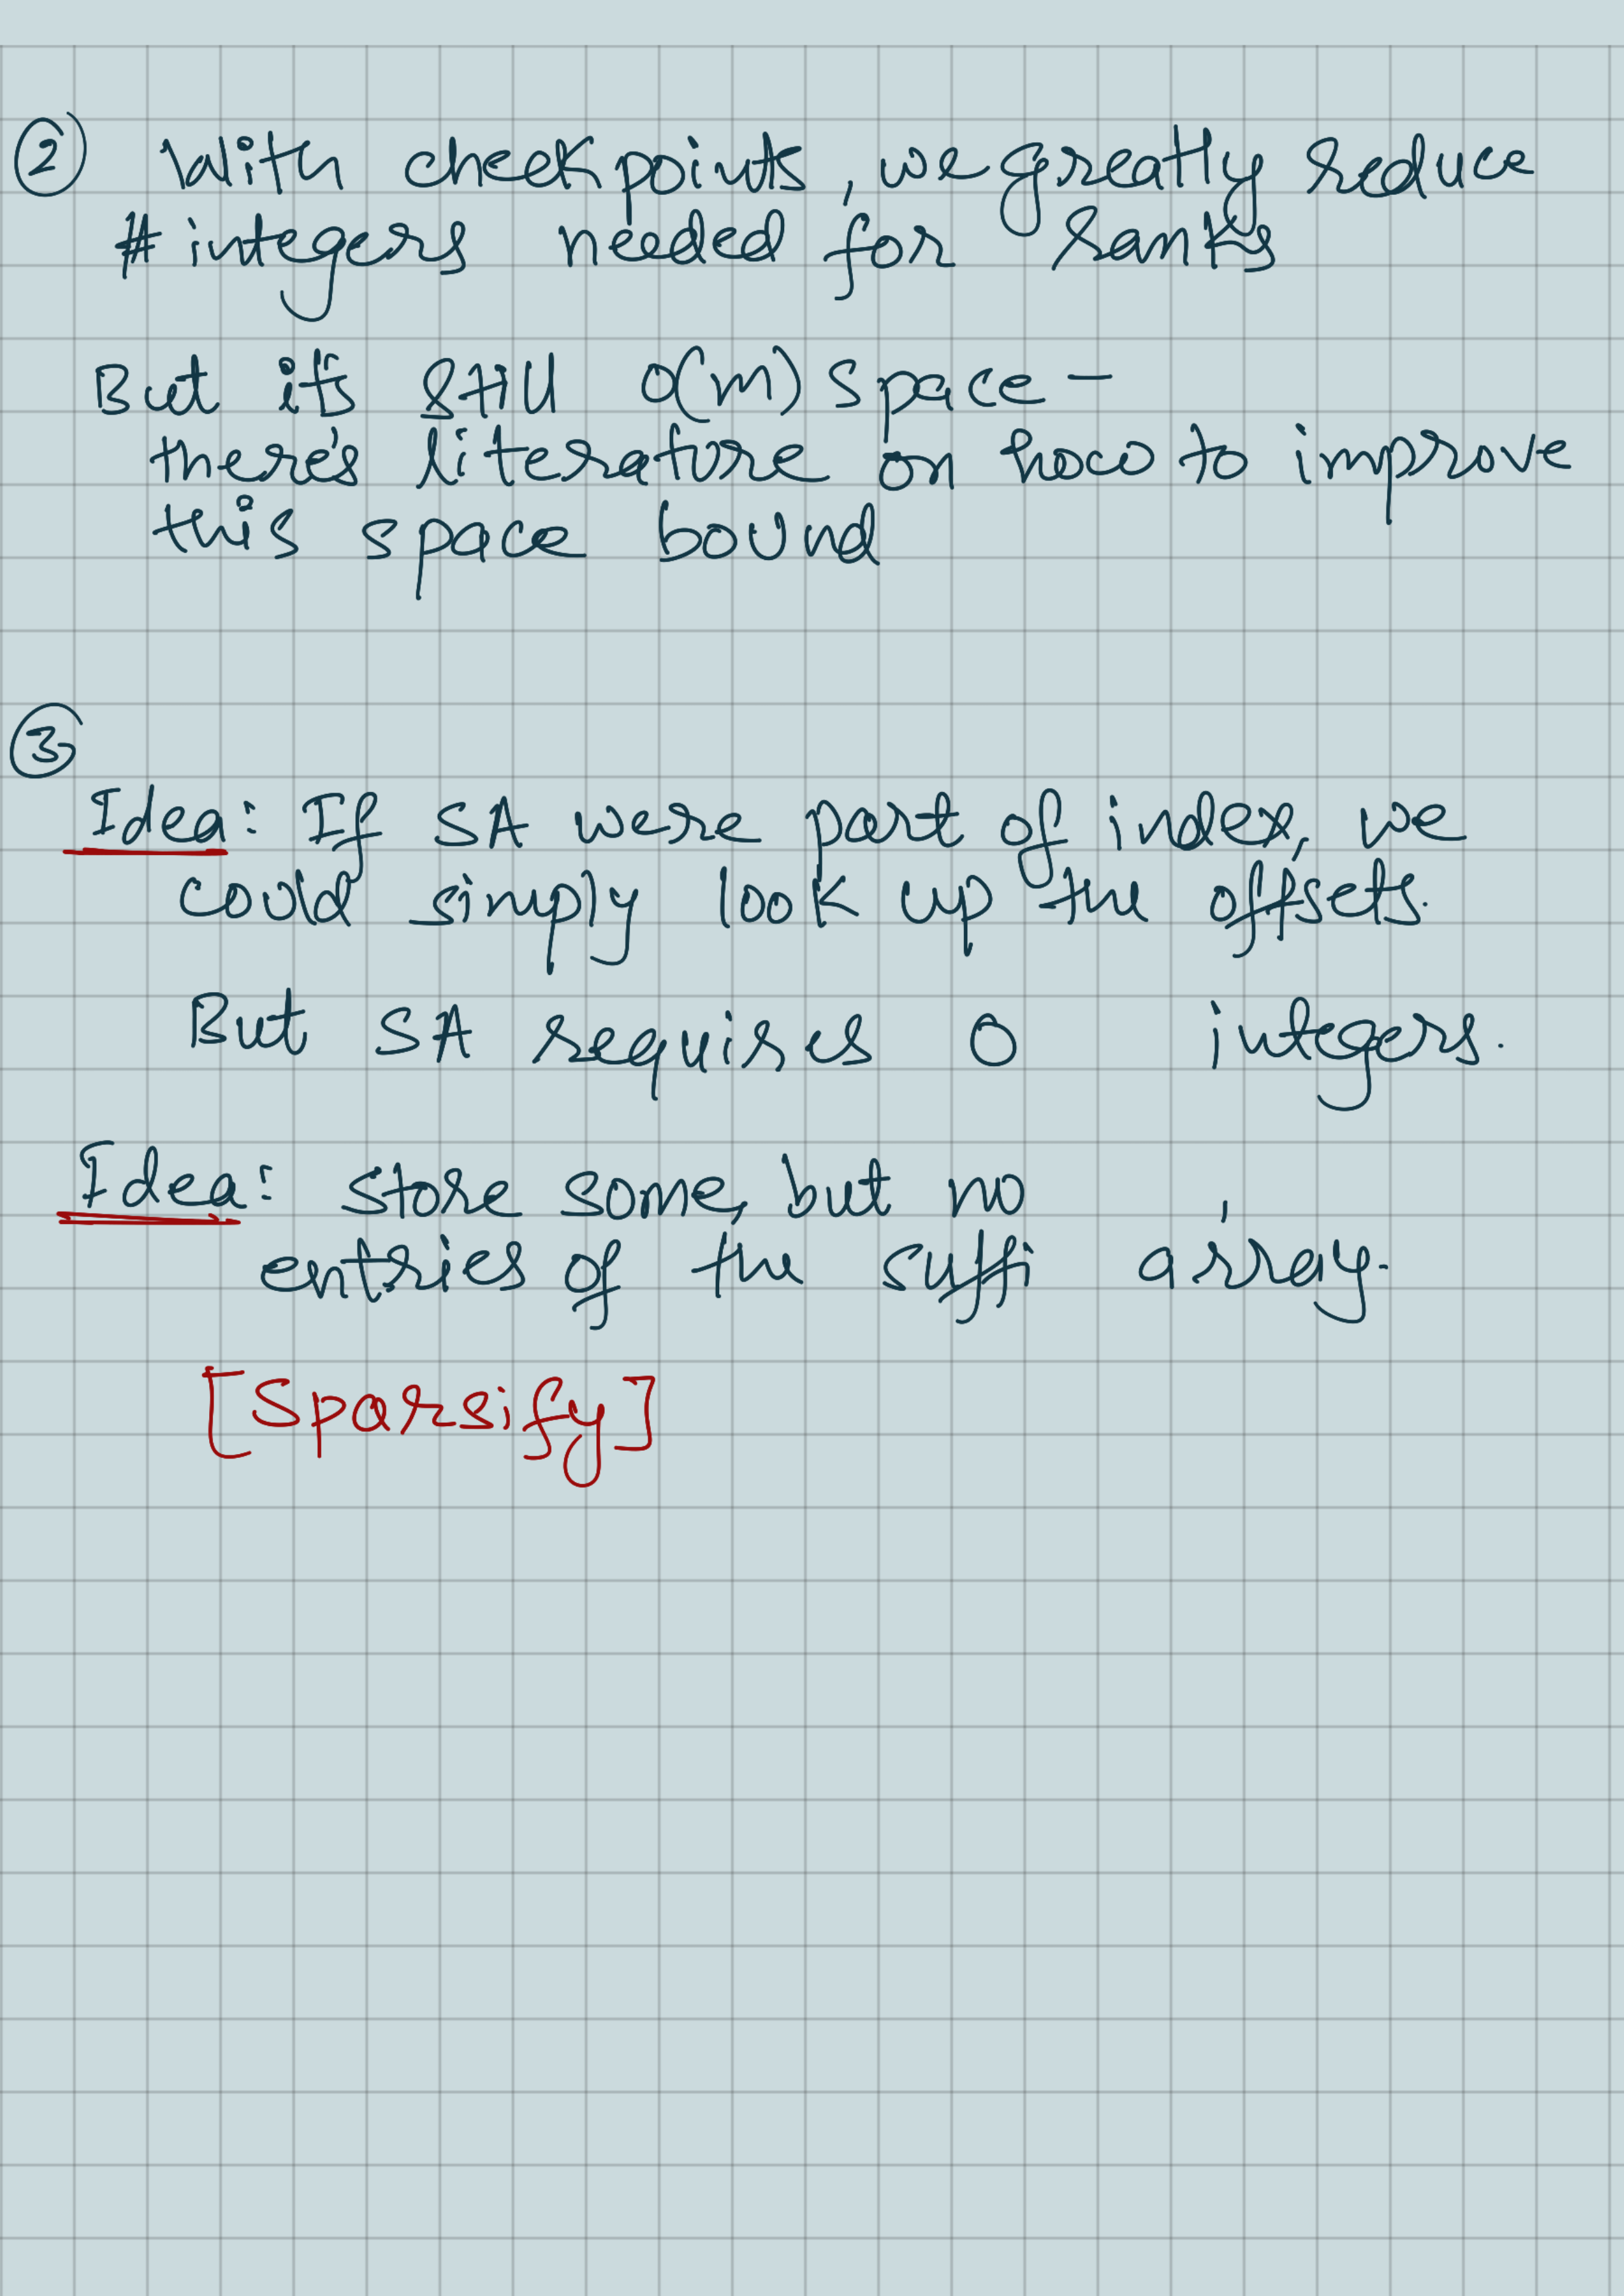 ② With checkpoints, we greatly reduce
# integers needed for ranks
But it's still O(m) space -
there's literature on how to improve
this space bound
③
Idea: If SA were part of index, we
could simply look up the offsets.
But SA requires O integers.
Idea: store some, but no
entries of the suffi array.
[Sparsify]